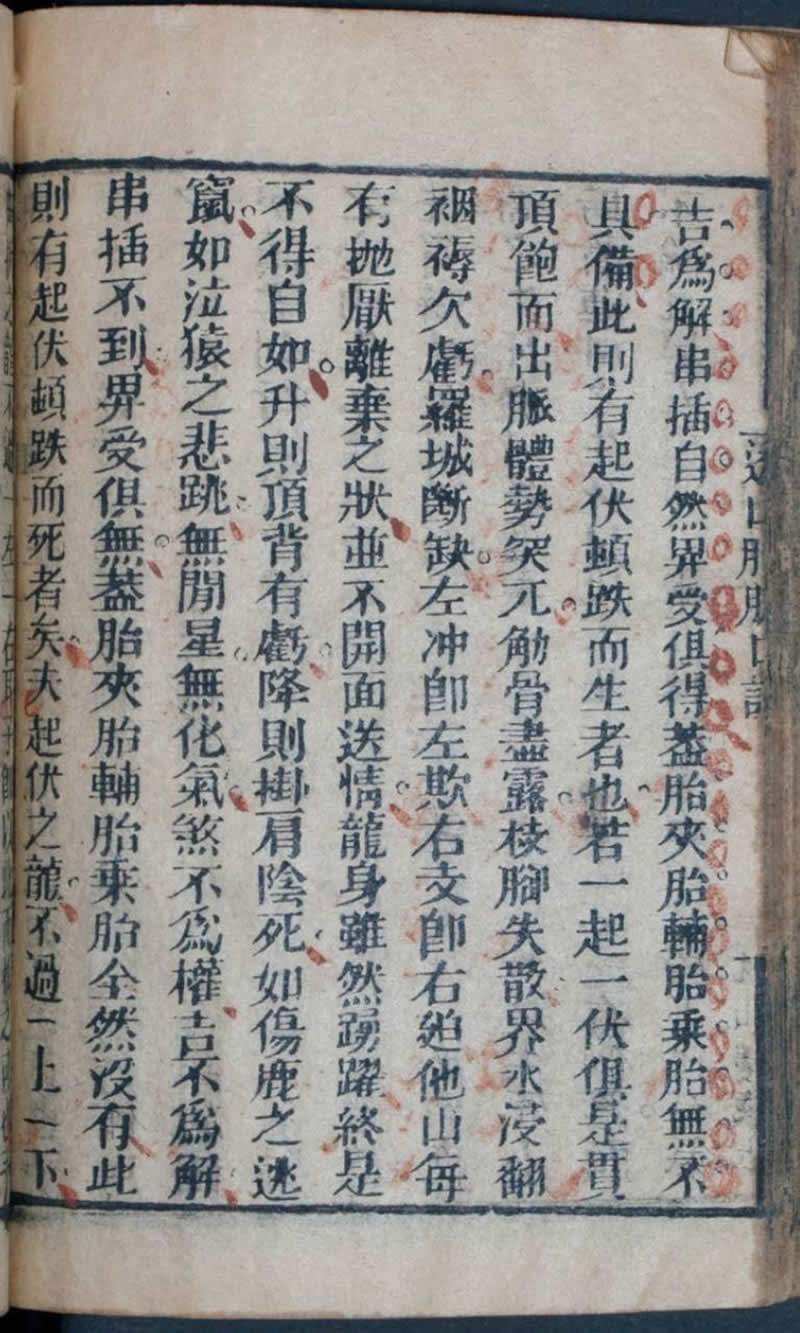 吉爲解串插自然界受俱得葢胎夾胎輔胎乘胎無不
具備此則有起伏頓跌而生者也若一起一伏俱是貫
頂飽而出脈體勢突兀觔骨盡露枝腳失散界水浸翻
裀褥欠虧羅城斷缺左冲卽左欺右支卽右廹他山每
有拋厭離棄之狀並不開面送情龍身雖然踴躍終是
不得自如升則頂背有虧降則掛肩陰死如傷鹿之逃
竄如泣猿之悲跳無閒星無化氣煞不爲權吉不爲解
串插不到界受俱無葢胎夾胎輔胎乘胎全然沒有此
則有起伏頓跌而死者矣夫起伏之龍不過一上一下